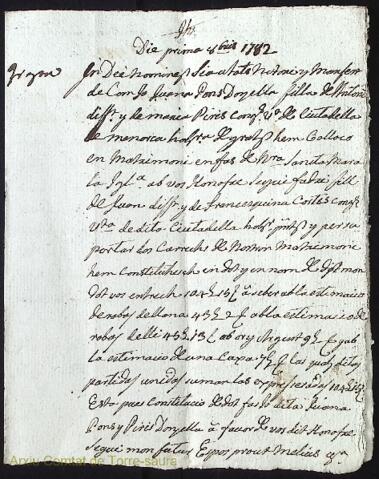 Die prima 8bris 1782
In Dei Nomine sia a tots notori y manifest
de Com Jo Juana Pons Donzella filla de Antoni
difft. y de Maria Piris
de Ciutadella
de Menorca de hem Colloco
en Matrimoni en fas de Nra Santa Mara
la Iglᵃ ab vos Honofre Seguí fadri fill
de Juan difft. y de Francesquina Cortés
de dita Ciutadella y per su
portar los Carrechs de Nostron Matrimoni
hem Constituhesch en dot y en nom de dot mon
dot vos entrech 104 15 a saber ab la estimacio
de robas de llana 43 2 ab la estimacio de
robas de lli 45 13 ab or y Argent 9 y ab
la estimacio de una Caxa 7 las quals ditas
partidas unidas suman las expressadas 104 15
Esta pues Constitucio de dot fas Jo dita Juana
Pons y Piris Donzella a favor de vos dit Honofre
Seguí mon futur Espos prout Melius
Arxiu Comtat de Torre-saura